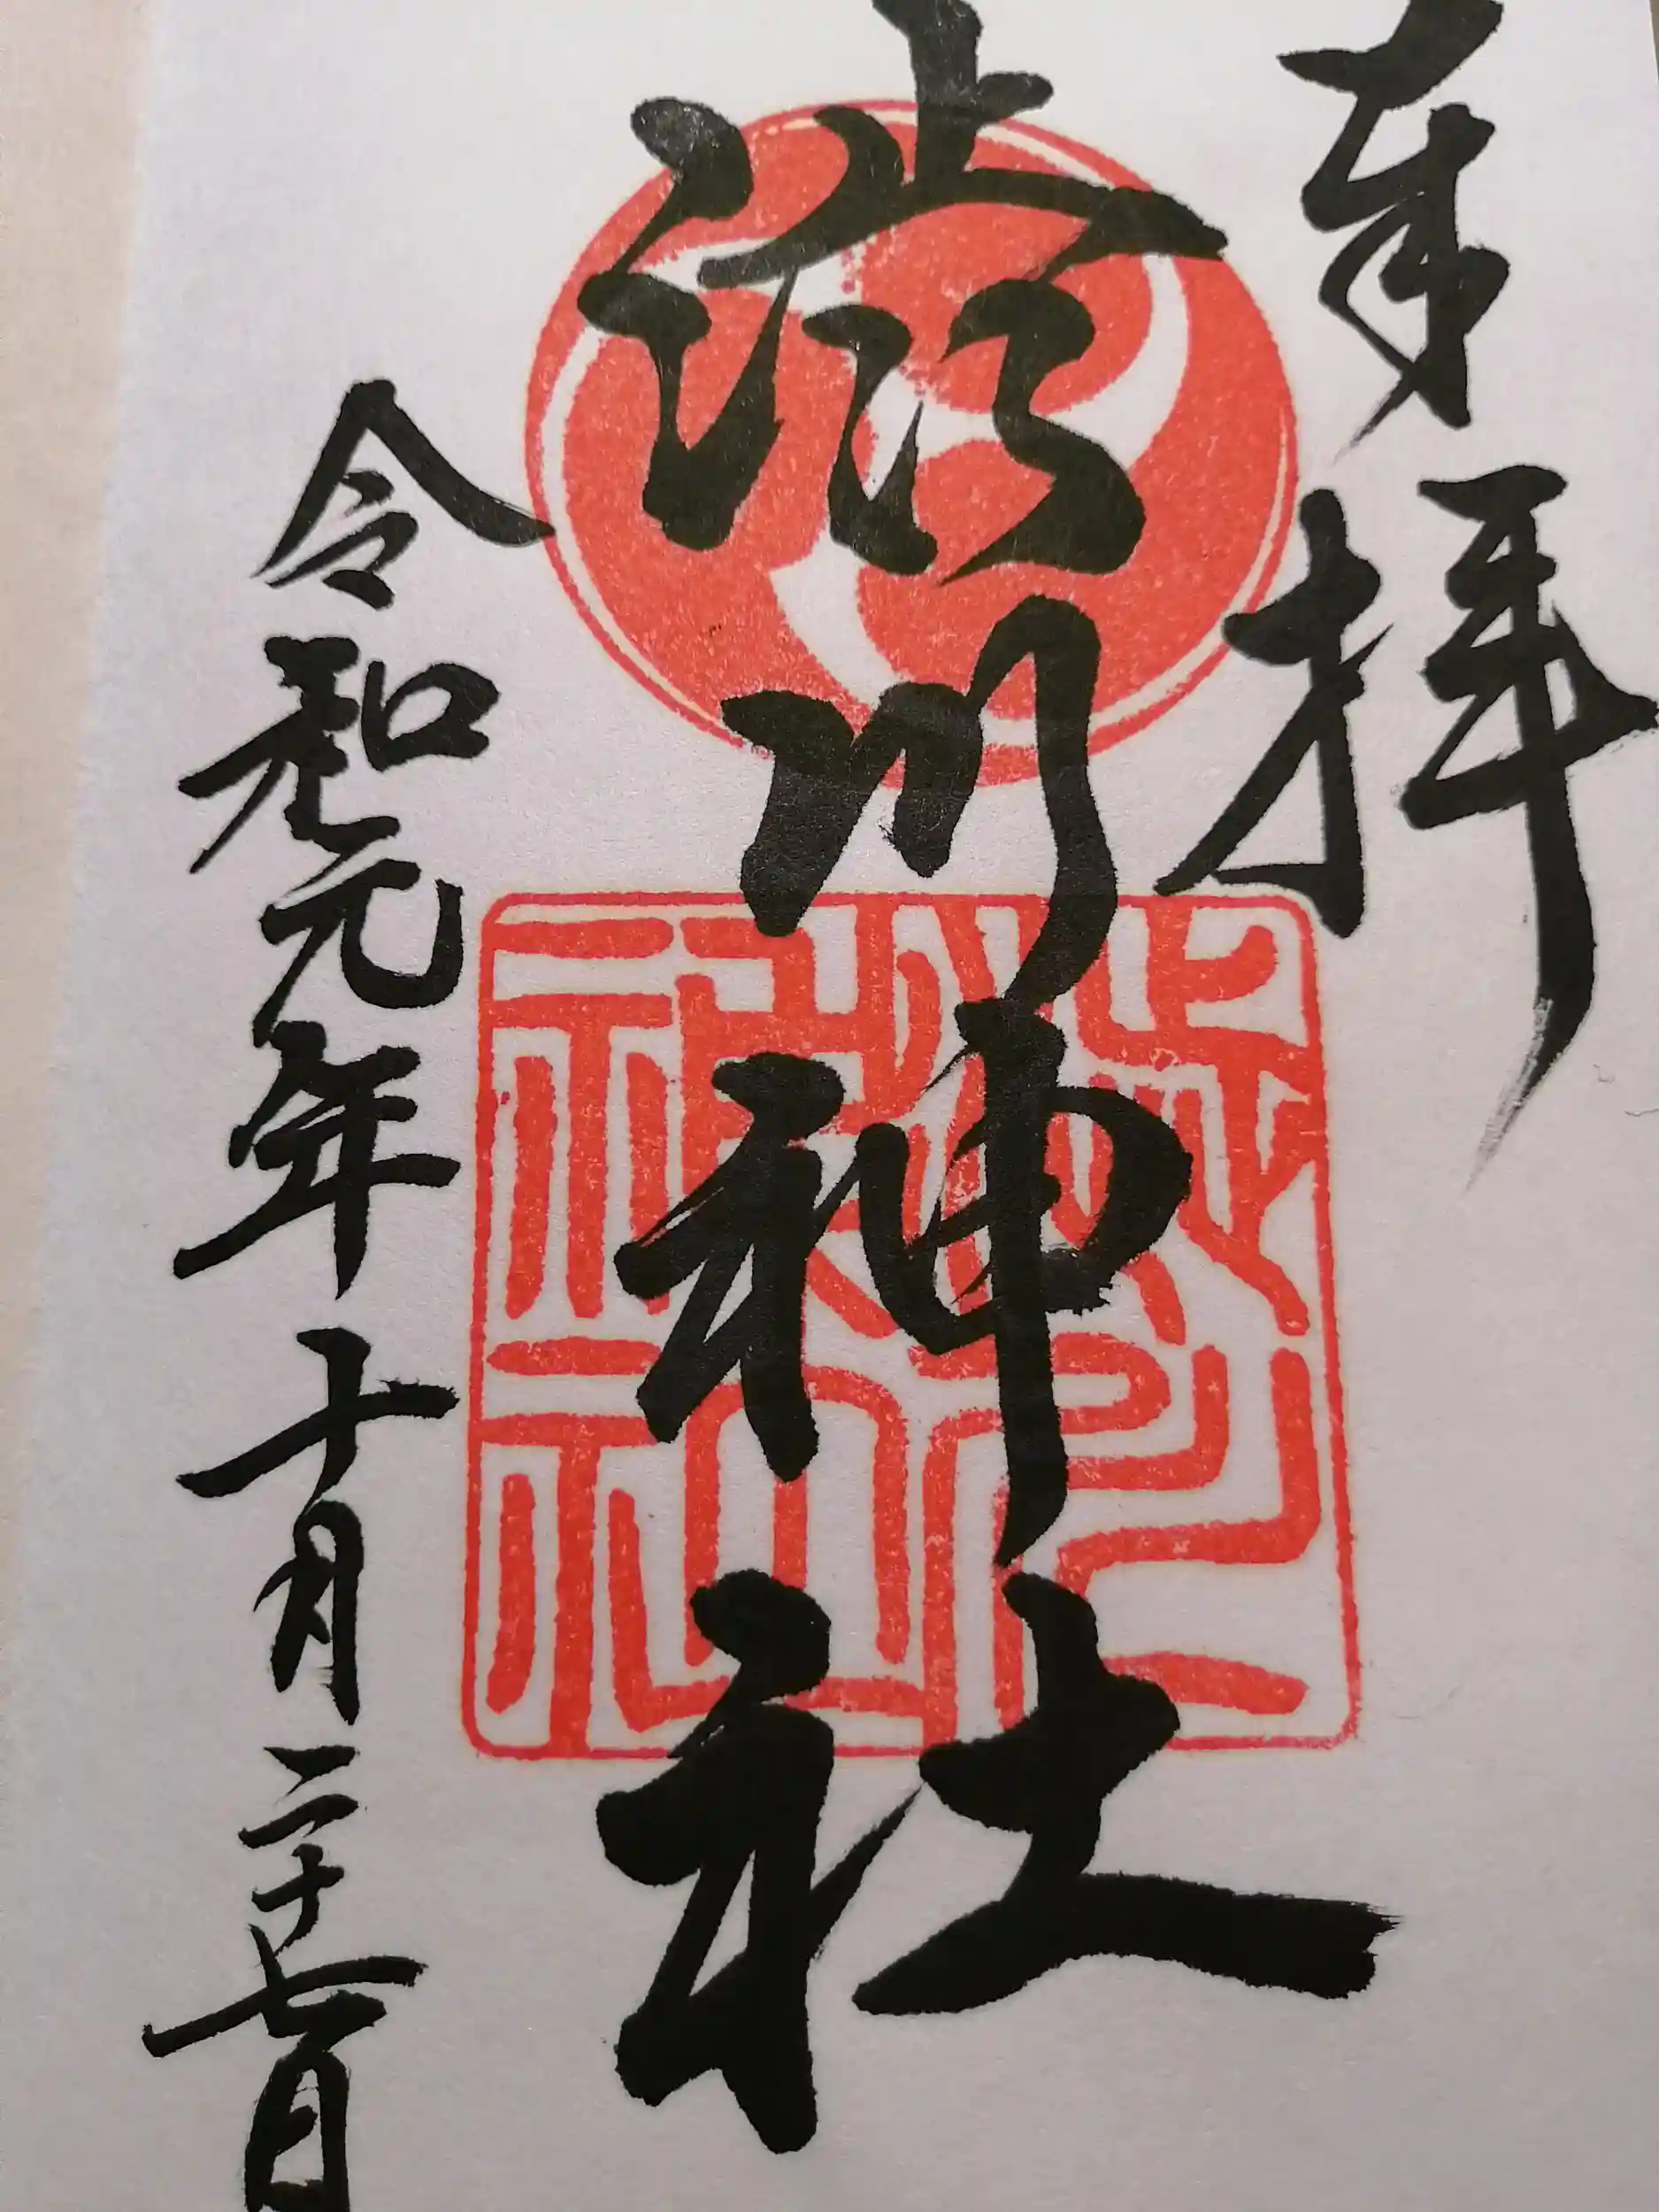 奉拝
澁川神社
令和元年十月二十七日